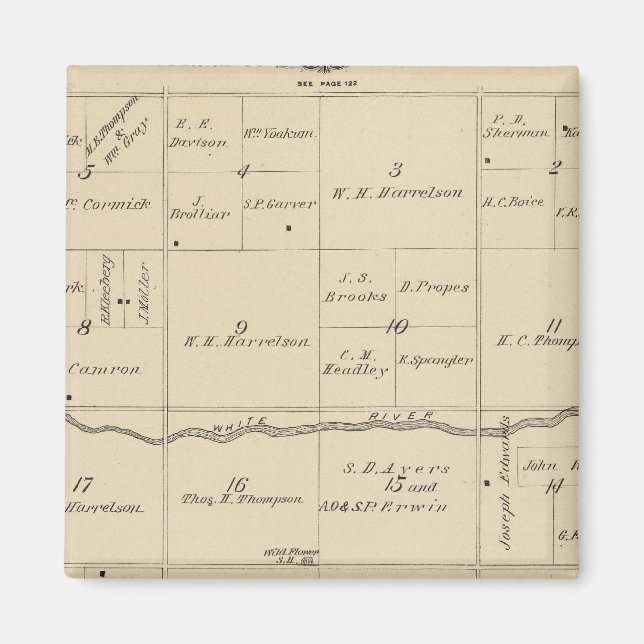 SEE PAGE 122
M.E. Thompson
&
Wm Gray
5
Cormick
E. E.
Davison
Wm Yoakum
4
J.
Brolliar
S.P. Garver
3
W. H. Harrelson
P. D.
Sherman
2
H.C. Boice
V.K.
R. Kleeberg
J. Moller
8
Camron
9
W. H. Harrelson
J. S.
Brooks
D. Propes
10
C. M.
Headley
K. Spangler
11
H. C. Thomp
WHITE RIVER
17
Harrelson
16
Thos. H. Thompson
Wild Flower
S.H.
S. D. Ayers
15 and
A.O & S.P. Erwin
Joseph Edwards
John
14
G.